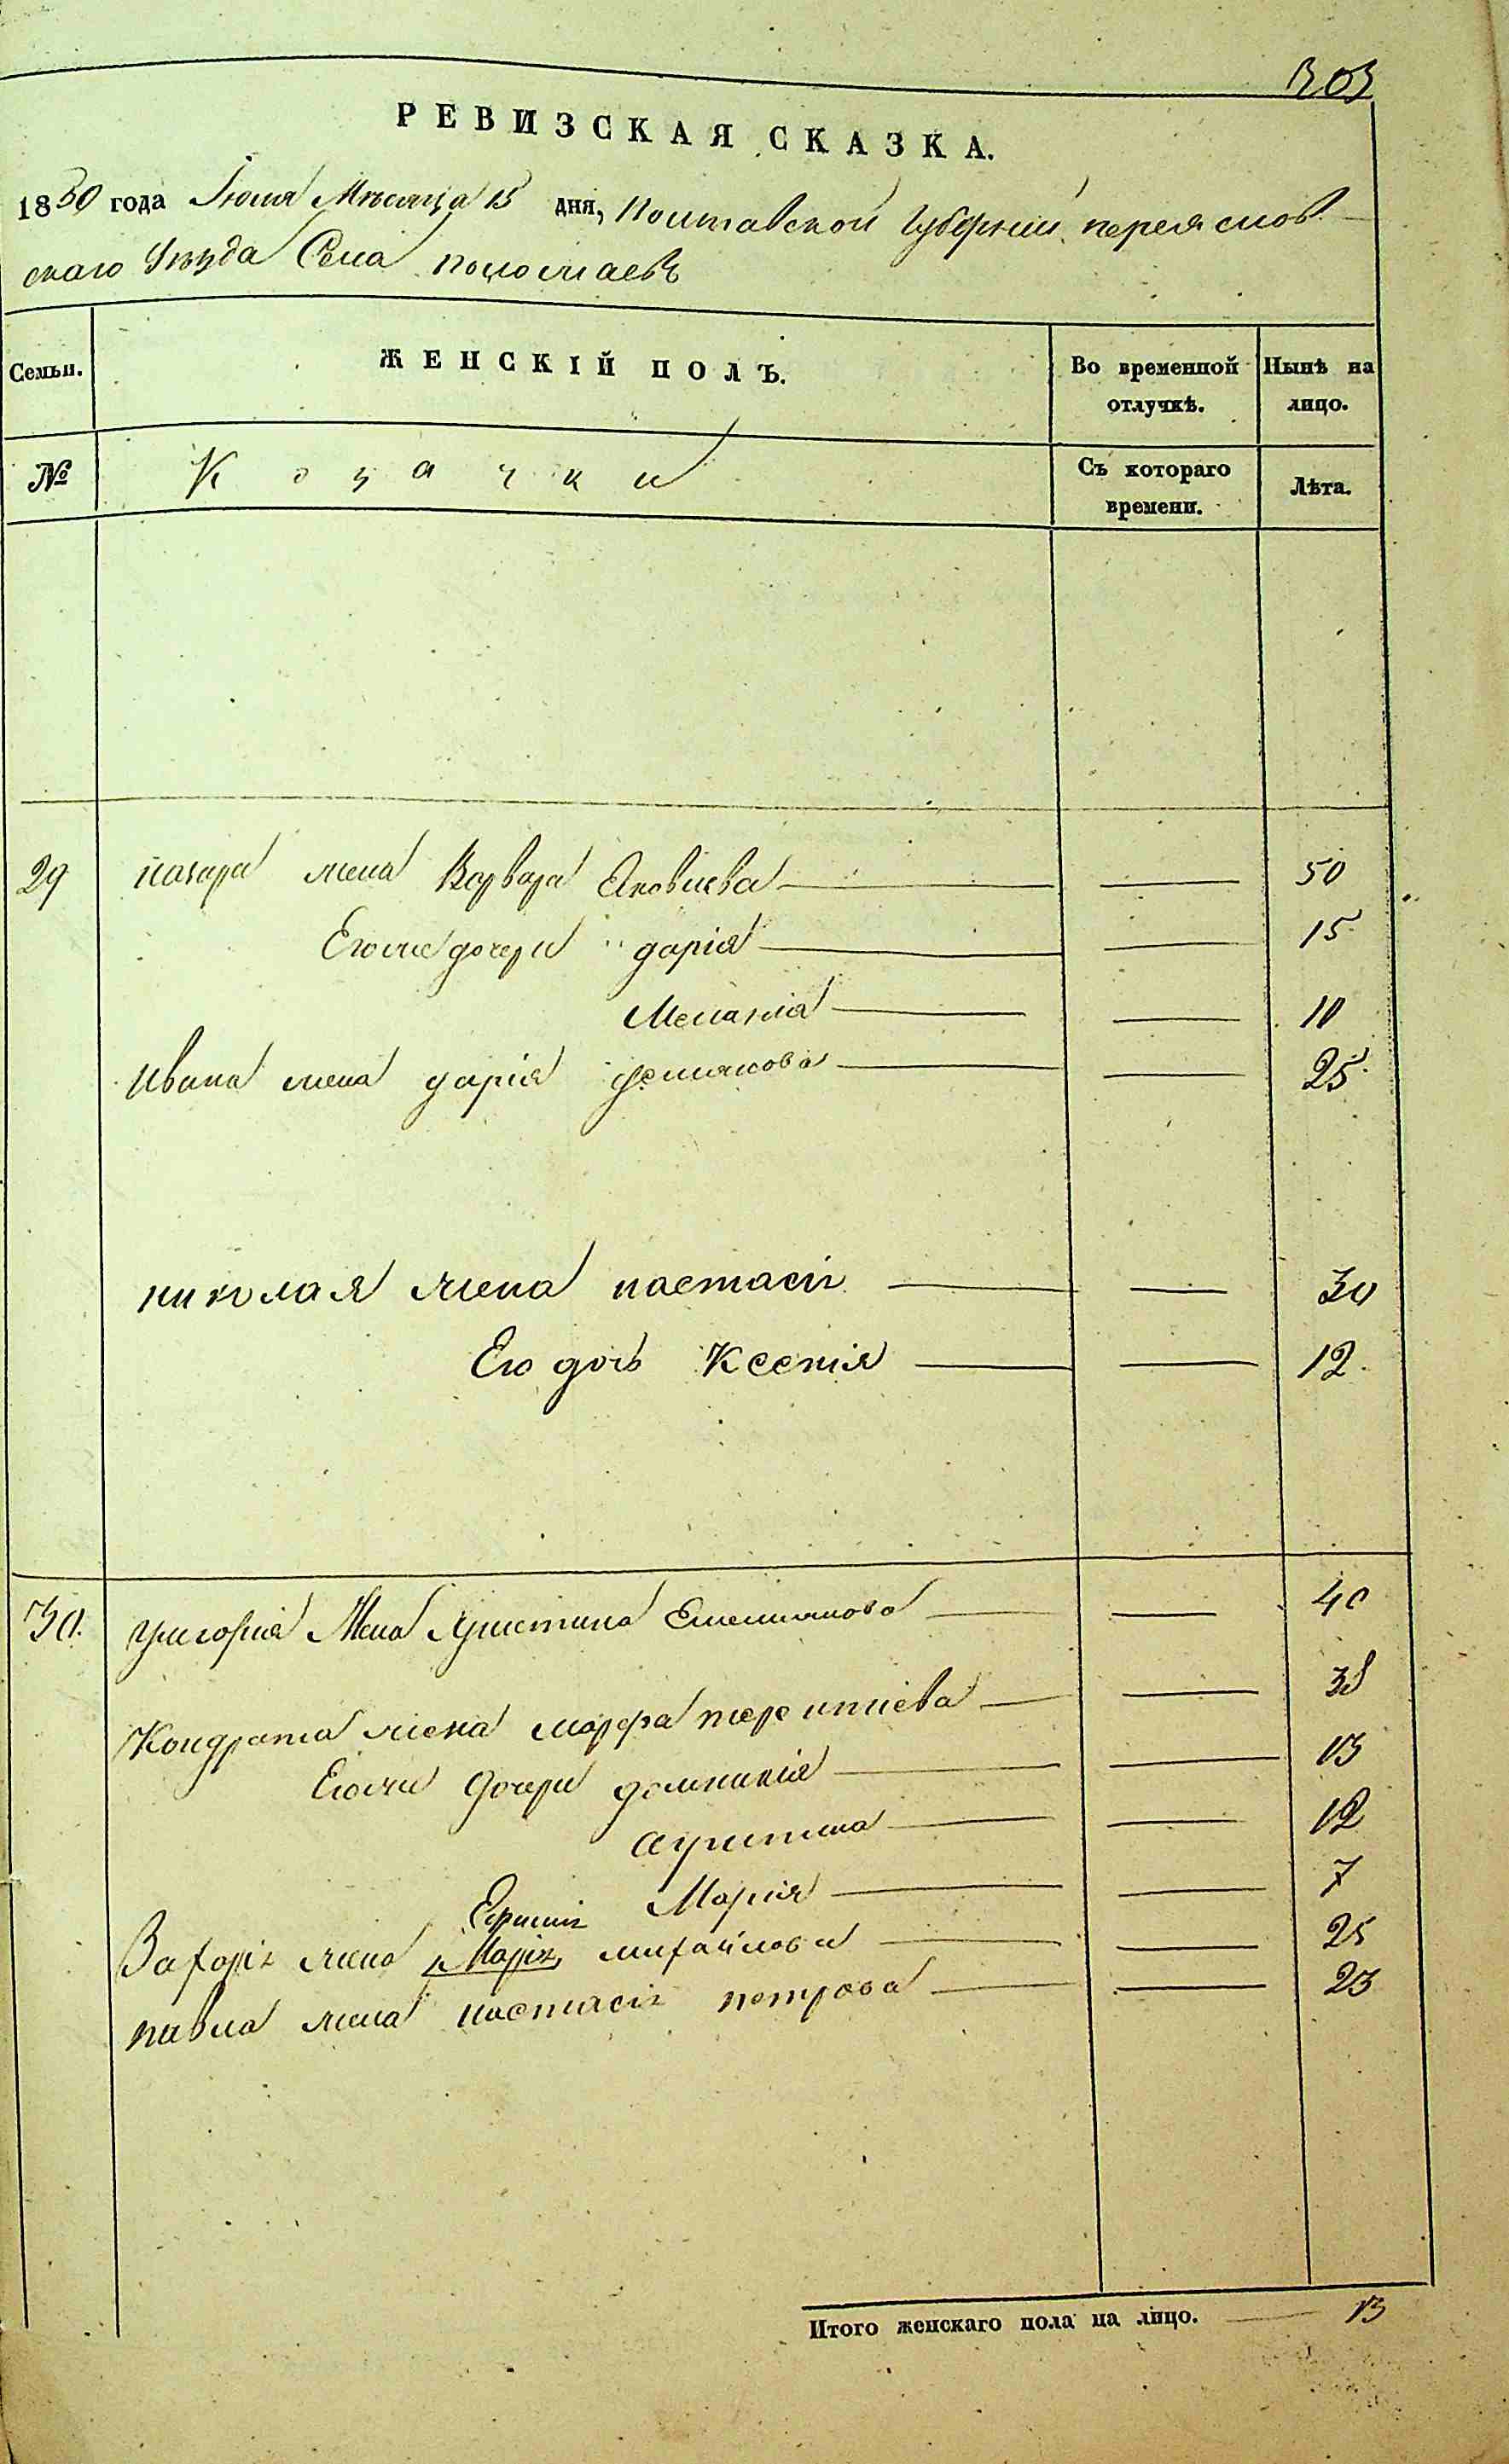 303
РЕВИЗСКАЯ СКАЗКА.
1850 года Іюля Мѣсяца 15 дня, Полтавской Губерніи переяслов
скаго Уѣзда Села
Семьи. ЖЕНСКІЙ ПОЛЪ. Во временной отлучкѣ. Нынѣ на лицо.
№ Козачки Съ котораго времени. Лѣта.
29 назара жена Варвара Яковлева — — 50
Его же дочери дарія — — 15
Меланія — — 10
Ивана жена дарія — — 25
николая жена настасія — — 30
Его дочь Ксенія — — 12
30. григорія Жена христина Емельянова — — 40
Кондрата жена марфа терентіева — — 38
Его же дочери домникія — — 13
— — 12
Марія — — 7
Ефимія
Захарія жена Марія михайлова — — 25
павла жена настасія петрова — — 23
Итого женскаго пола на лицо. — 13